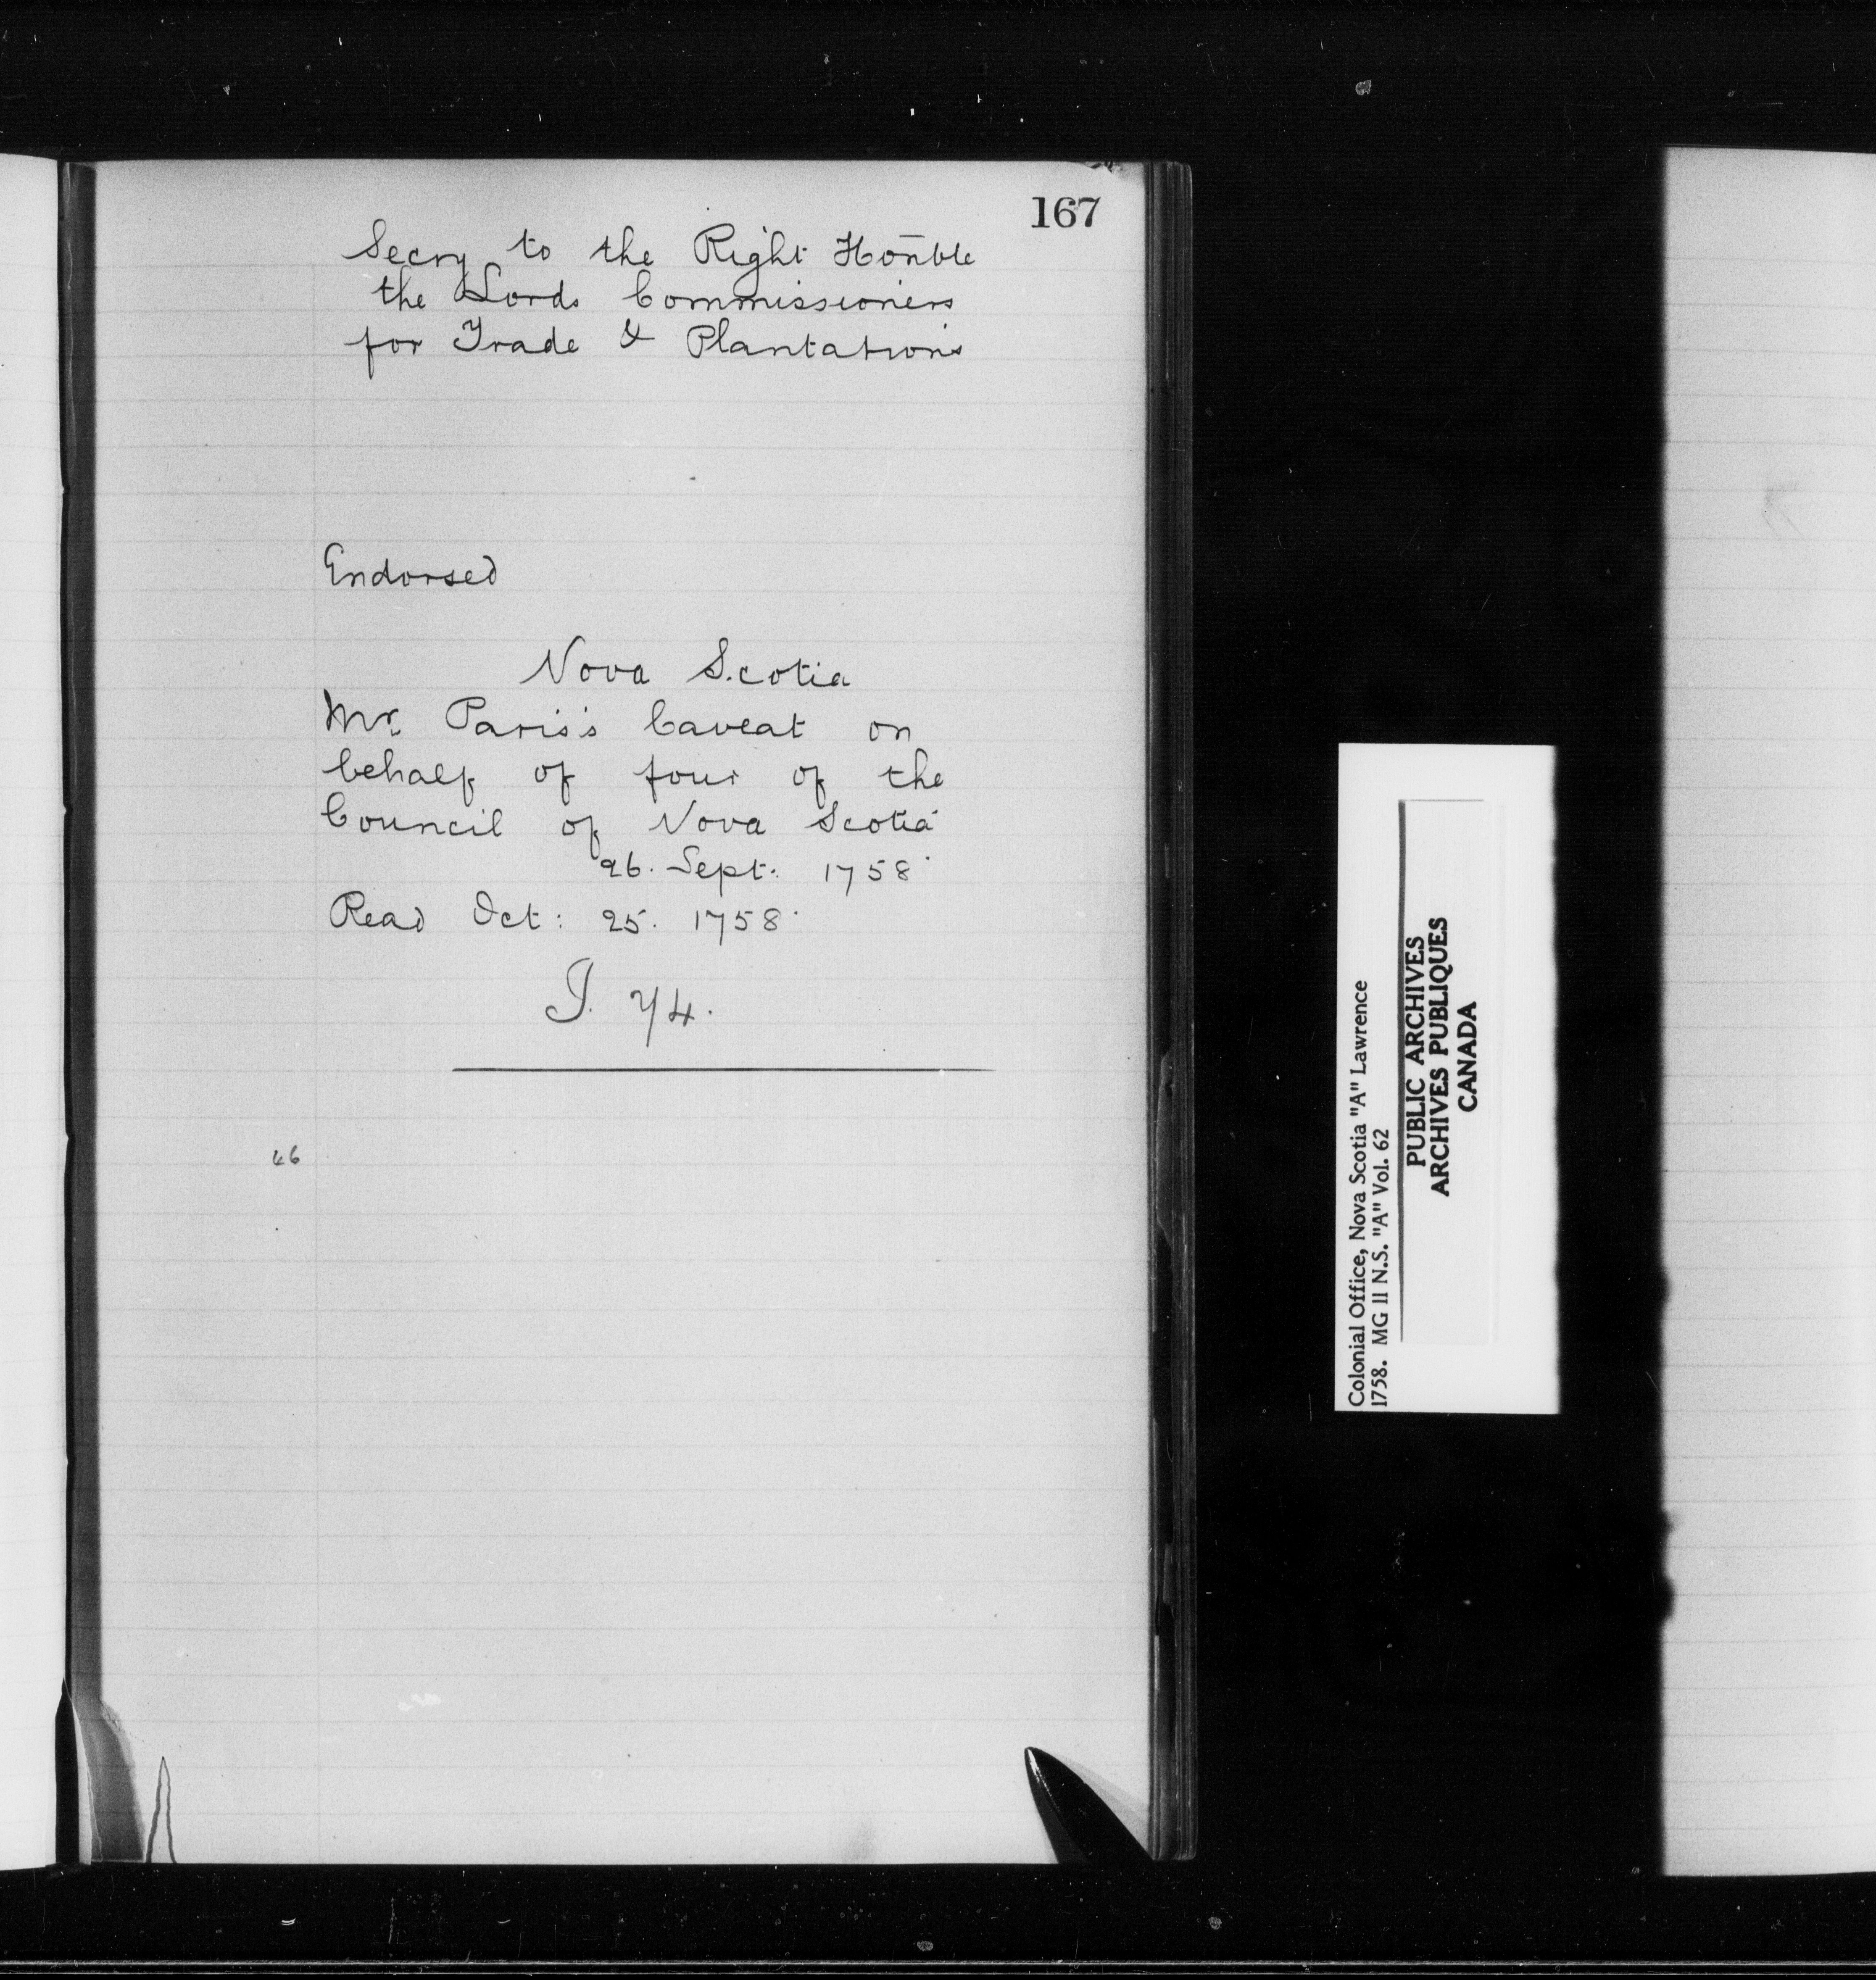 167
Secry to the Right Hon̄ble
the Lords Commissioners
for Trade & Plantations
Endorsed
Nova Scotia
Mr. Paris's Caveat on
behalf of four of the
Council of Nova Scotia
26. Sept. 1758
Read Oct: 25. 1758.
J. 74.
66
Colonial Office, Nova Scotia "A" Lawrence
1758. MG 11 N.S. "A" Vol. 62
PUBLIC ARCHIVES
ARCHIVES PUBLIQUES
CANADA